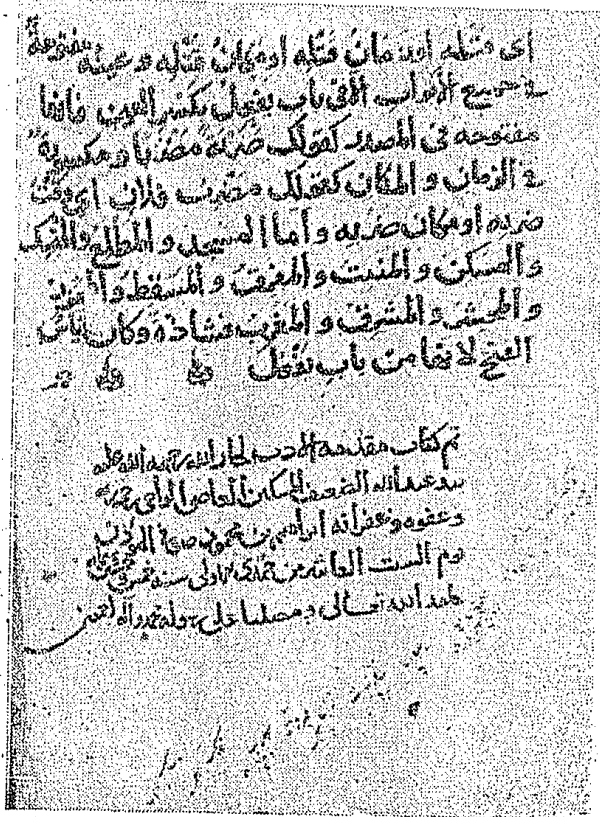 اى قتله او زمان قتله او مكان قتله و عينه مفتوحة
فى جميع الابواب الا فى باب يفعل بكسر العين فانها
مفتوحه فى المصدر كقولك ضربه مضربا و مكسورة
فى الزمان و المكان كقولك مضرب فلان اى وقت
ضربه او مكان ضربه و اما المسجد و المطلع و المنسك
و المسكن و المنبت و المفرق و المسقط و
و المحشر و المشرق و المغرب فشاذة و كان قياس
الفتح لانها من باب يفعل
تم كتاب مقدمة الادب لجار الله رحمة الله عليه
عبد الله الضعيف المسكين العاصى الراجى رحمة
و عفوه و غفرانه ابراهيم بن
يوم السبت العاشر من جمادى الاولى سنة
حامدا لله تعالى و مصليا على رسوله محمد و آله اجمعين